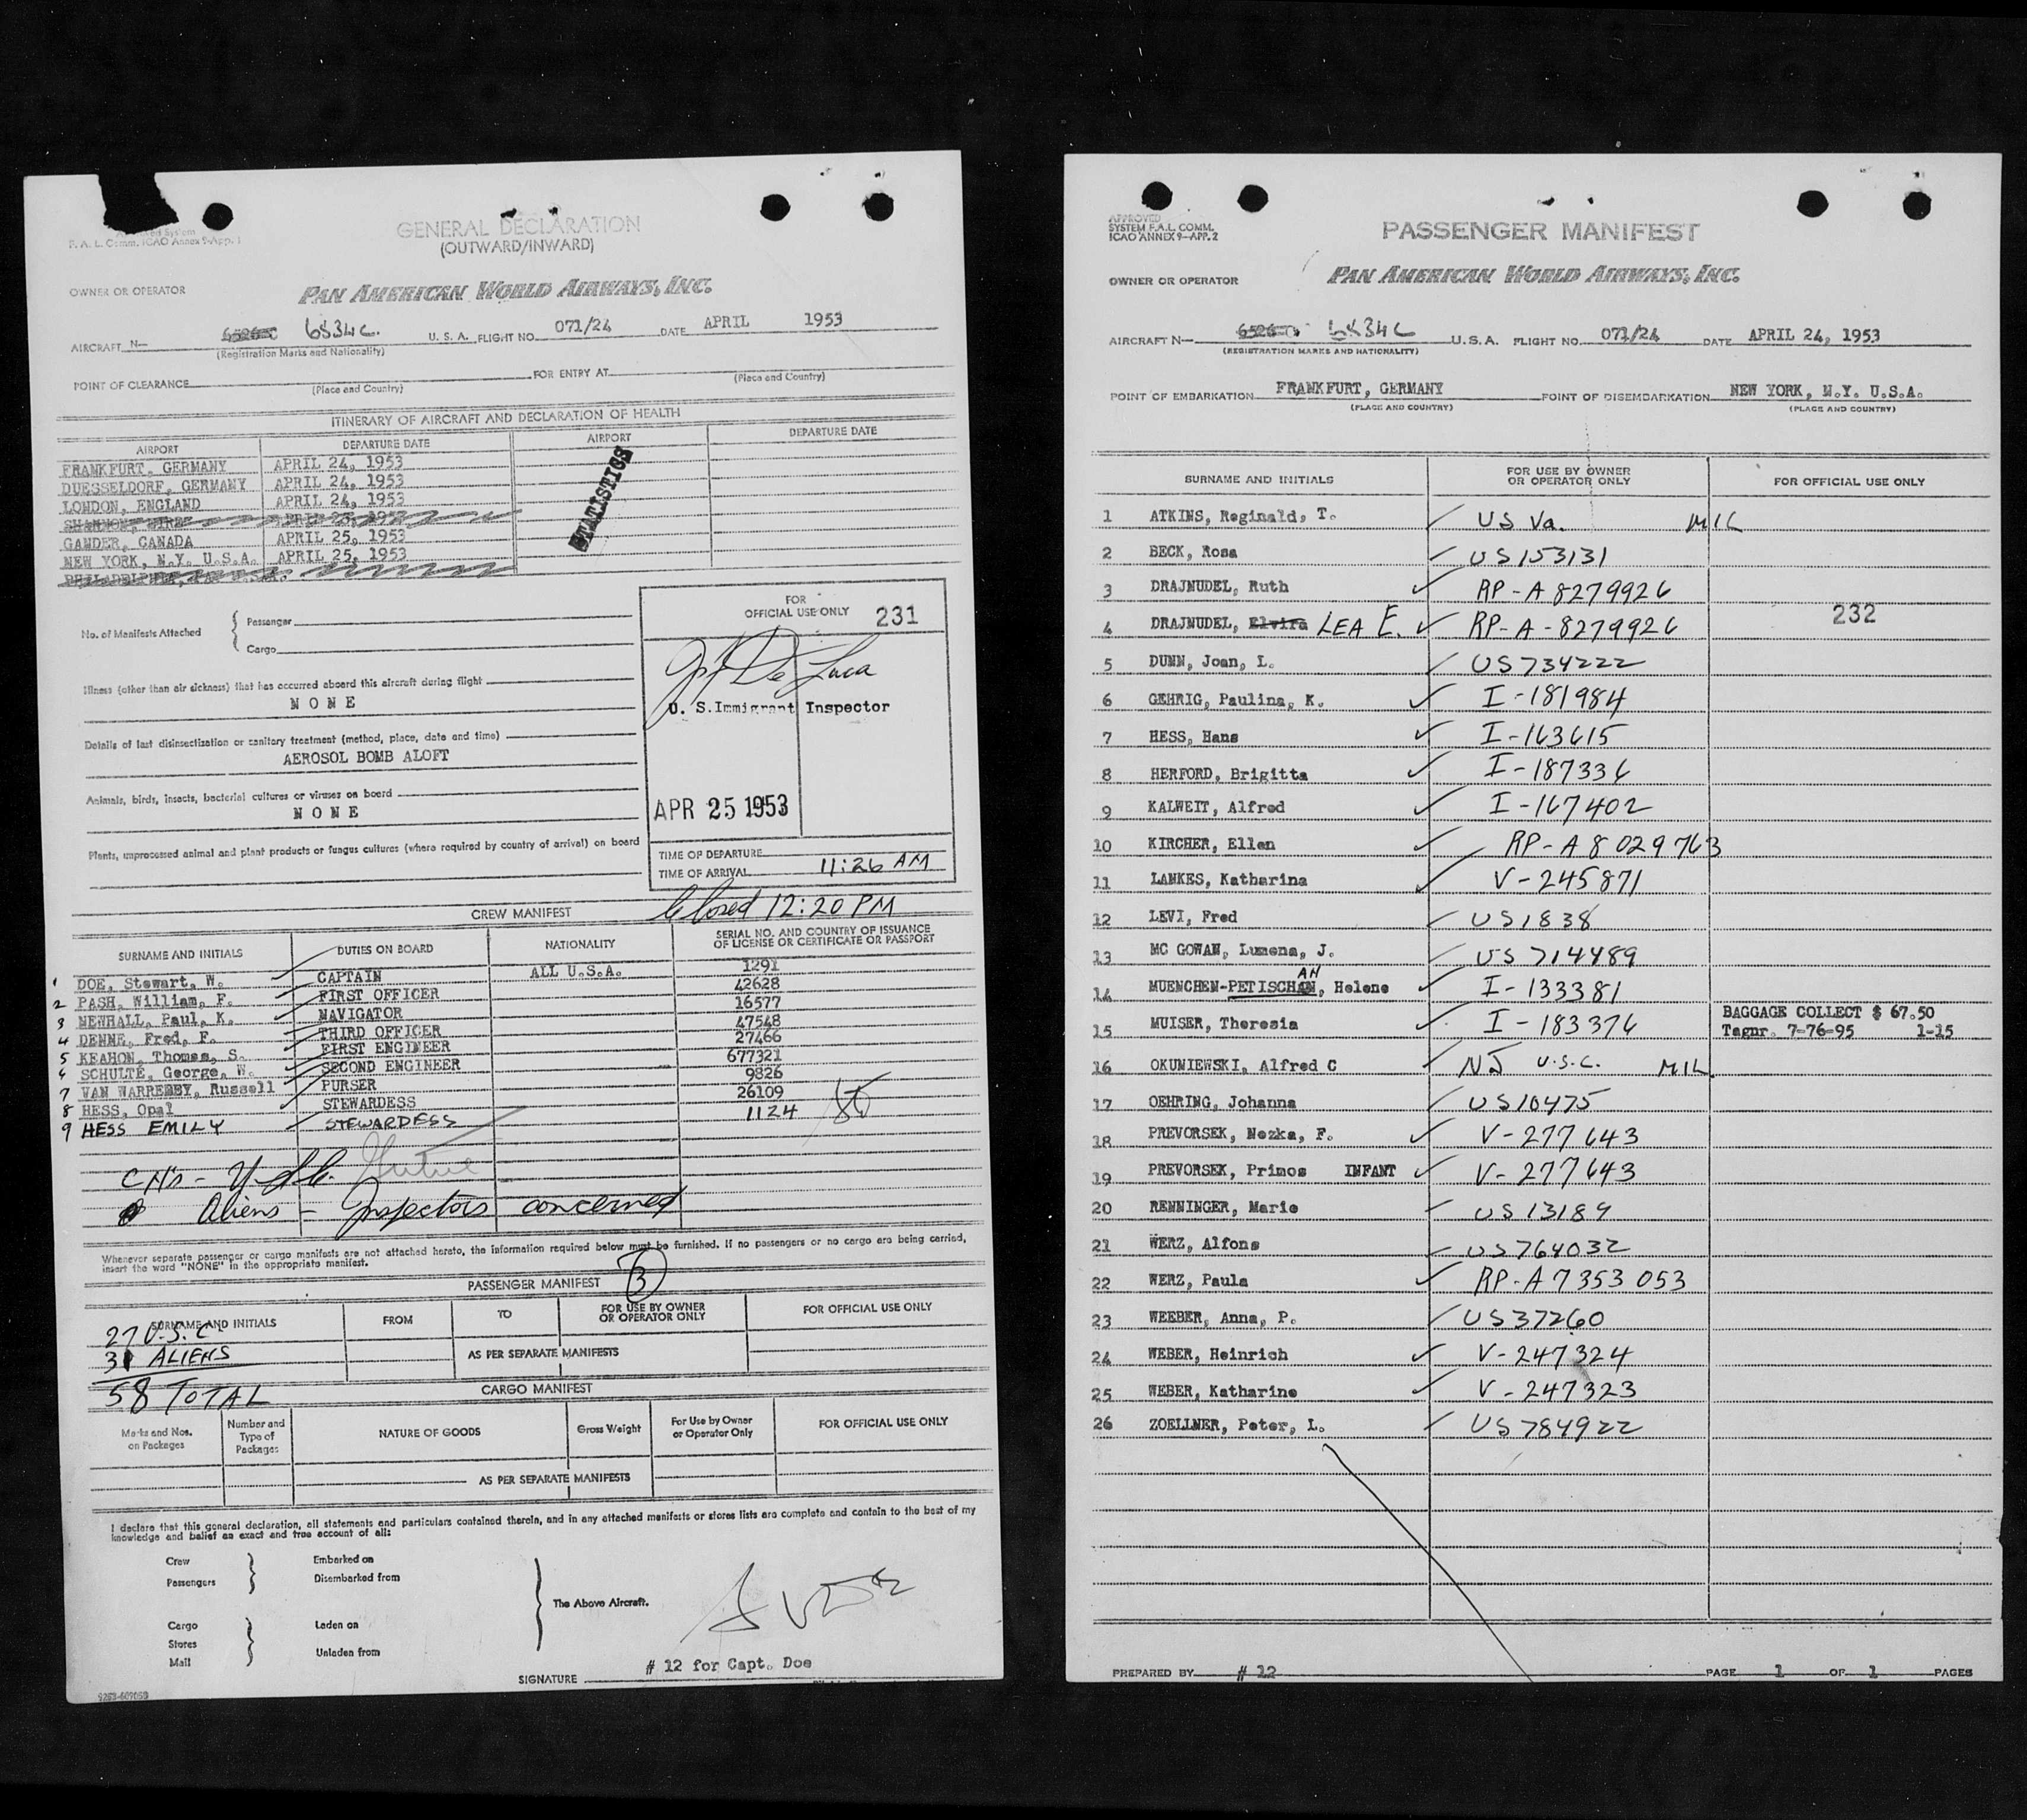 Approved System
F. A. L. Comm. ICAO Annex 9-App. 1
GENERAL DECLARATION
(OUTWARD/INWARD)
OWNER OR OPERATOR
PAN AMERICAN WORLD AIRWAYS, INC.
AIRCRAFT N— 6526C 6534C. U. S. A. FLIGHT NO. 071/24 DATE APRIL 1953
(Registration Marks and Nationality)
POINT OF CLEARANCE FOR ENTRY AT
(Place and Country) (Place and Country)
ITINERARY OF AIRCRAFT AND DECLARATION OF HEALTH
AIRPORT DEPARTURE DATE AIRPORT DEPARTURE DATE
FRANKFURT. GERMANY APRIL 24, 1953
DUESSELDORF, GERMANY APRIL 24, 1953
LONDON, ENGLAND APRIL 24, 1953
SHANNON, EIRE
GANDER, CANADA APRIL 25, 1953
NEW YORK, N.Y. U.S.A. APRIL 25, 1953
PHILADELPHIA, PA. U.S.A.
STATISTICS
No. of Manifests Attached
Passenger
Cargo
FOR
OFFICIAL USE ONLY 231
Jos De Luca
U. S. Immigrant Inspector
APR 25 1953
TIME OF DEPARTURE
TIME OF ARRIVAL 11:26 AM
Illness (other than air sickness) that has occurred aboard this aircraft during flight
NONE
Details of last disinsectization or sanitary treatment (method, place, date and time)
AEROSOL BOMB ALOFT
Animals, birds, insects, bacterial cultures or viruses on board
NONE
Plants, unprocessed animal and plant products or fungus cultures (where required by country of arrival) on board
CREW MANIFEST Closed 12:20 PM
SURNAME AND INITIALS DUTIES ON BOARD NATIONALITY SERIAL NO. AND COUNTRY OF ISSUANCE OF LICENSE OR CERTIFICATE OR PASSPORT
1 DOE, Stewart, W. CAPTAIN ALL U.S.A. 1291
2 PASH, William, F. FIRST OFFICER 42628
3 NEWHALL, Paul, K. NAVIGATOR 16577
4 DENNE, Fred, F. THIRD OFFICER 47548
5 KEAHON, Thomas, S. FIRST ENGINEER 27466
6 SCHULTE, George, W. SECOND ENGINEER 677321
7 VAN WARREMBY, Russell PURSER 9826
8 HESS, Opal STEWARDESS 26109
9 HESS EMILY STEWARDESS 1124
Aliens - Inspectors concerned
Whenever separate passenger or cargo manifests are not attached hereto, the information required below must be furnished. If no passengers or no cargo are being carried,
insert the word "NONE" in the appropriate manifest.
PASSENGER MANIFEST 3
SURNAME AND INITIALS FROM TO FOR USE BY OWNER OR OPERATOR ONLY FOR OFFICIAL USE ONLY
27 U.S.C.
31 ALIENS AS PER SEPARATE MANIFESTS
58 TOTAL
CARGO MANIFEST
Marks and Nos. on Packages Number and Type of Packages NATURE OF GOODS Gross Weight For Use by Owner or Operator Only FOR OFFICIAL USE ONLY
AS PER SEPARATE MANIFESTS
I declare that this general declaration, all statements and particulars contained therein, and in any attached manifests or stores lists are complete and contain to the best of my
knowledge and belief an exact and true account of all:
Crew Embarked on
Passengers Disembarked from
The Above Aircraft.
Cargo Laden on
Stores
Mail Unladen from
SIGNATURE # 12 for Capt. Doe
APPROVED
SYSTEM F.A.L. COMM.
ICAO ANNEX 9—APP. 2
PASSENGER MANIFEST
OWNER OR OPERATOR
PAN AMERICAN WORLD AIRWAYS, INC.
AIRCRAFT N— 6526C 6534C U.S.A. FLIGHT NO. 071/24 DATE APRIL 24, 1953
(REGISTRATION MARKS AND NATIONALITY)
POINT OF EMBARKATION FRANKFURT, GERMANY POINT OF DISEMBARKATION NEW YORK, N.Y. U.S.A.
(PLACE AND COUNTRY) (PLACE AND COUNTRY)
SURNAME AND INITIALS FOR USE BY OWNER OR OPERATOR ONLY FOR OFFICIAL USE ONLY
1 ATKINS, Reginald, T. US Va. MIL
2 BECK, Rosa US153131
3 DRAJNUDEL, Ruth RP-A 8279926
232
4 DRAJNUDEL, Elvira LEA E. RP-A-8279926
5 DUNN, Joan, L. US734222
6 GEHRIG, Paulina, K. I-181984
7 HESS, Hans I-163615
8 HERFORD, Brigitta I-187336
9 KALWEIT, Alfred I-167402
10 KIRCHER, Ellen RP-A8029763
11 LANKES, Katharina V-245871
12 LEVI, Fred US1838
13 MC GOWAN, Lumena, J. US714489
AH
14 MUENCHEN-PETISCHAN, Helene I-133381
15 MUISER, Theresia I-183376 BAGGAGE COLLECT $ 67.50
Tagnr. 7-76-95 1-15
16 OKUNIEWSKI, Alfred C NJ U.S.C. MIL
17 OEHRING, Johanna US10475
18 PREVORSEK, Nezka, F. V-277643
19 PREVORSEK, Primos INFANT V-277643
20 RENNINGER, Marie US13189
21 WERZ, Alfons US764032
22 WERZ, Paula RP-A7353053
23 WEEBER, Anna, P. US37260
24 WEBER, Heinrich V-247324
25 WEBER, Katharine V-247323
26 ZOELLNER, Peter, L. US784922
PREPARED BY # 12 PAGE 1 OF 1 PAGES